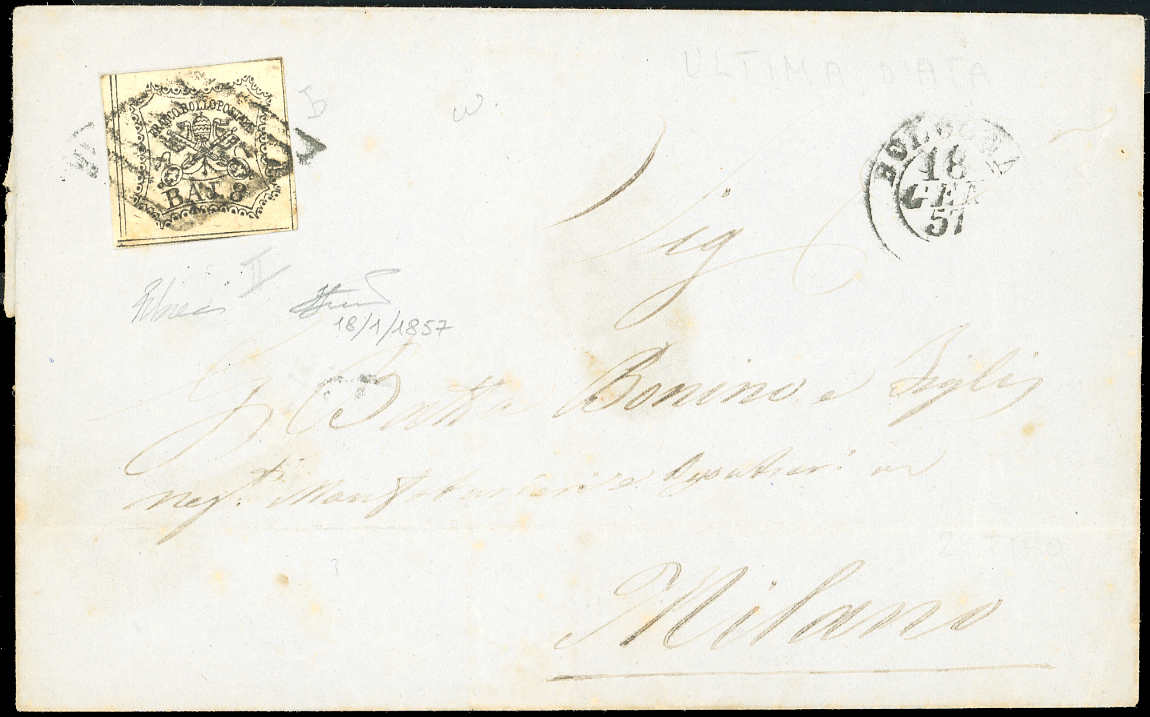 ULTIMA DATA
FRANCO BOLLO POSTALE
BAJ. 8
BOLOGNA
18
GEN
57
Sig
II
18/1/1857
G. Batta Bonino e Figli
Negti Manifatturieri e
Milano
2° TIPO